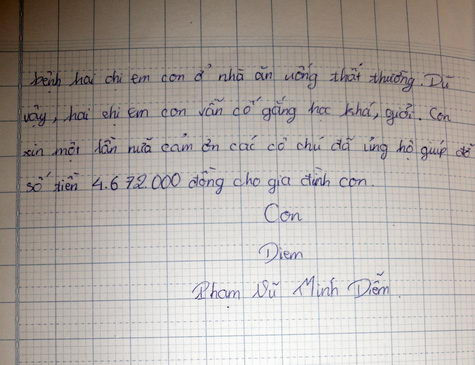 bệnh hai chị em con ở nhà ăn uống thất thường. Dù
vậy, hai chị em con vẫn cố gắng học khá, giỏi. Con
xin một lần nữa cảm ơn các cô chú đã ủng hộ giúp đỡ
số tiền 4.672.000 đồng cho gia đình con.
Con
Diem
Phạm Vũ Minh Diễm.